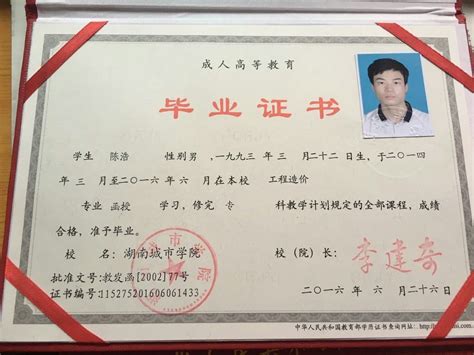 成人高等教育
毕业证书
学生 陈浩 性别男，一九九三年三月二十二日生，于二〇一四
年三月至二〇一六年六月在本校 工程造价
专业 函授 学习，修完 专 科教学计划规定的全部课程，成绩
合格，准予毕业。
校 名：湖南城市学院 校（院）长：李建奇
批准文号：教发函[2002]77号
证书编号：115275201606061433 二〇一六年六月二十六日
中华人民共和国教育部学历证书查询网址：